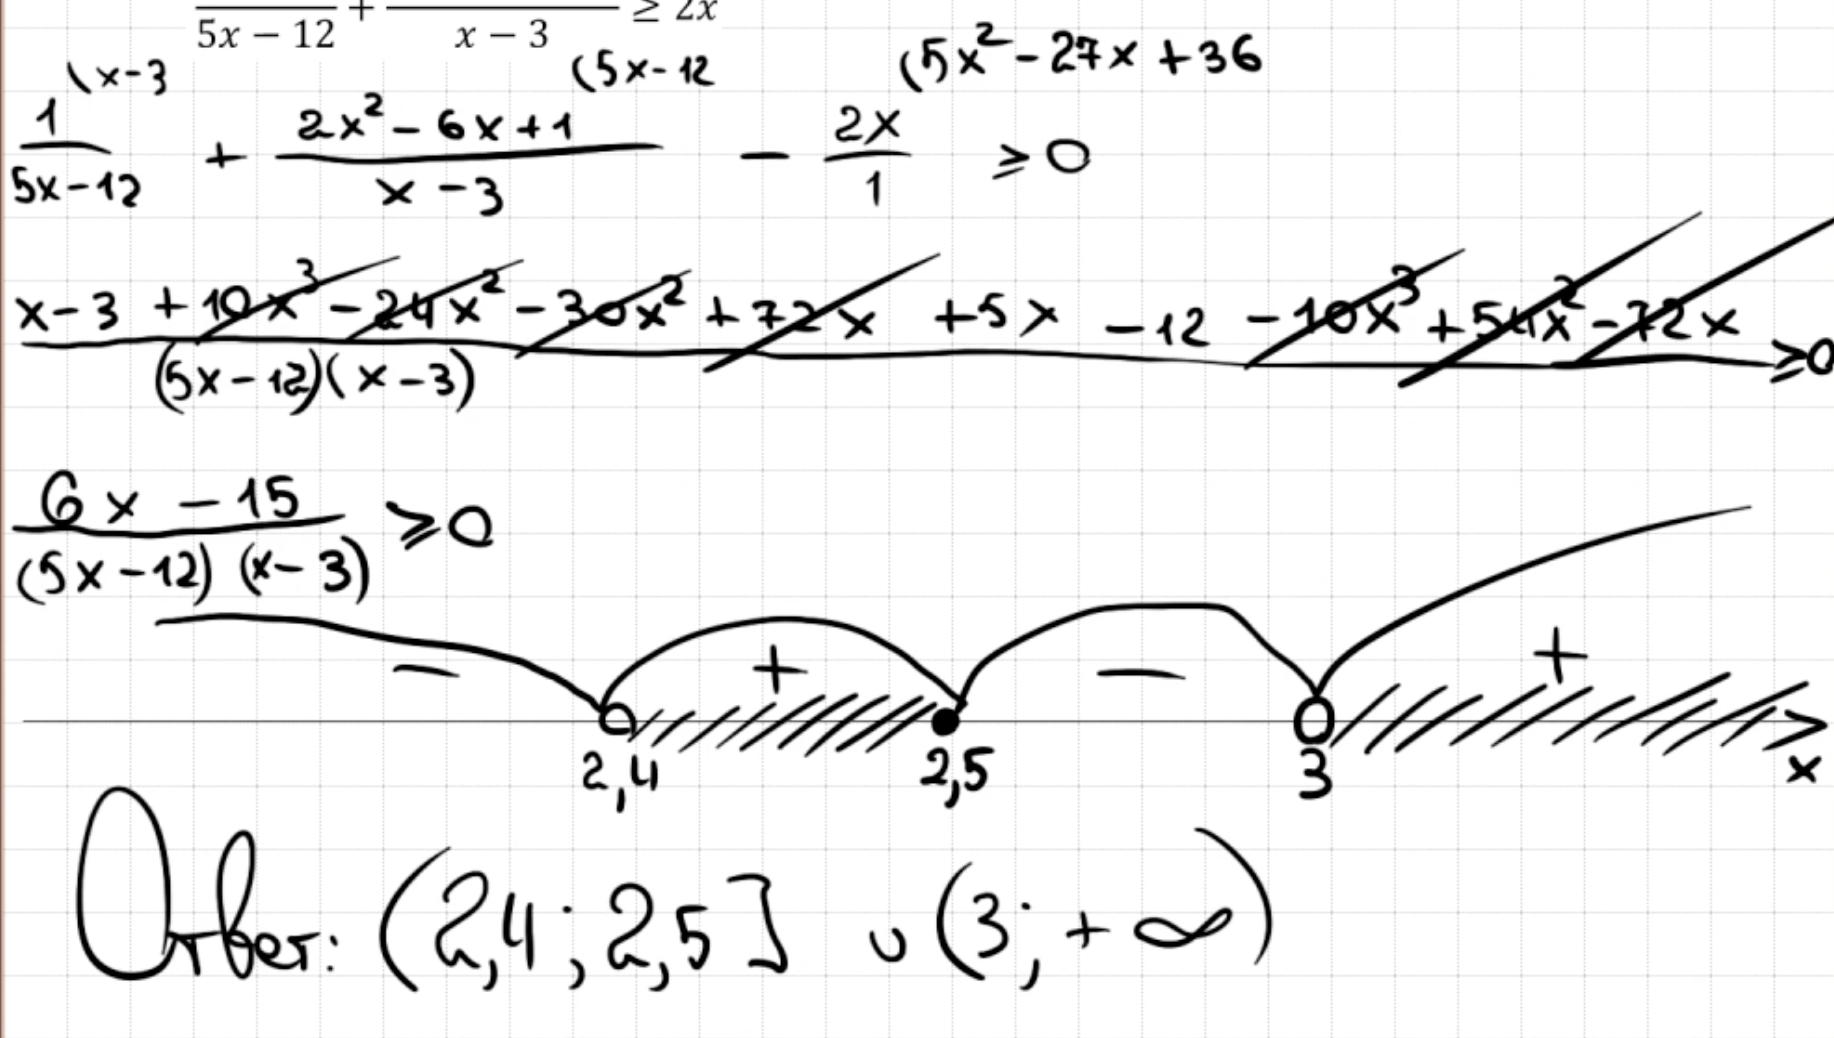 5x − 12 + x − 3 ≥ 2x
(x-3 (5x-12 (5x² - 27x + 36
1/(5x-12) + (2x² - 6x + 1)/(x - 3) - 2x/1 ≥ 0
(x-3 + 10x³ - 24x² - 30x² + 72x + 5x - 12 - 10x³ + 54x² - 72x)/((5x-12)(x-3)) ≥ 0
(6x - 15)/((5x-12)(x-3)) ≥ 0
− + − +
2,4 2,5 3 x
Ответ: (2,4; 2,5] ∪ (3; +∞)